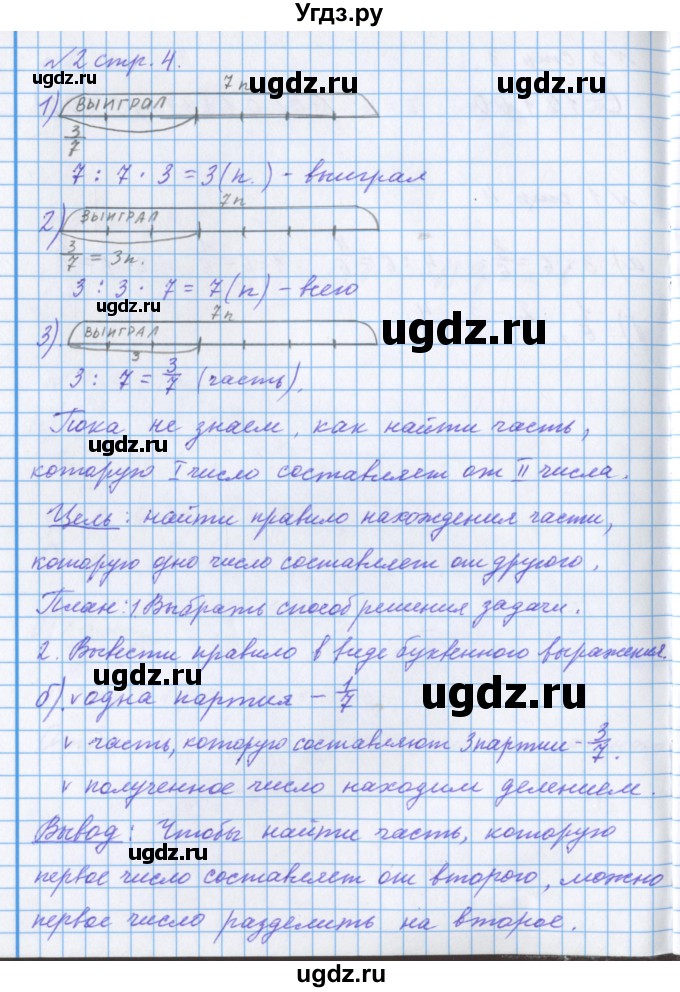 Угдз.ру
№2 стр. 4.
ugdz.ru
ugdz.ru
ugdz.ru
7 п
1) ВЫИГРАЛ
3/7
7 : 7 · 3 = 3 (п.) – выиграл
7п
2) ВЫИГРАЛ
3/7 = 3п.
3 : 3 · 7 = 7 (п) – всего
7п
3) ВЫИГРАЛ
ugdz.ru
3
3 : 7 = 3/7 (часть).
Пока не знаем, как найти часть,
ugdz.ru
которую I число составляет от II числа.
Цель: найти правило нахождения части,
ugdz.ru
которую одно число составляет от другого.
План: 1 Выбрать способ решения задачи.
2. Вывести правило в виде буквенного выражения.
ugdz.ru
ugdz.ru
б) v одна партия – 1/7
v часть, которую составляют 3 партии – 3/7.
v полученное число находим делением.
Вывод: Чтобы найти часть, которую
ugdz.ru
первое число составляет от второго, можно
первое число разделить на второе.
ugdz.ru
ugdz.ru